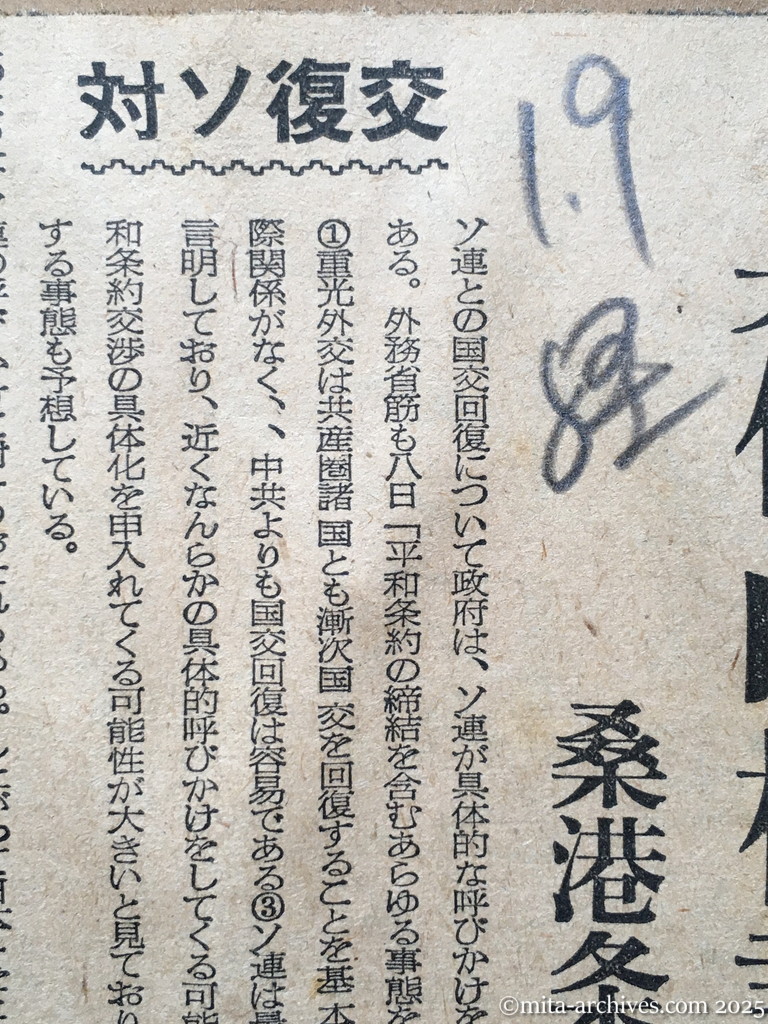 対ソ復交
1.9
経
桑港条
ソ連との国交回復について政府は、ソ連が具体的な呼びかけを
ある。外務省筋も八日「平和条約の締結を含むあらゆる事態を
①重光外交は共産圏諸国とも漸次国交を回復することを基本
際関係がなく、、中共よりも国交回復は容易である③ソ連は最
言明しており、近くなんらかの具体的呼びかけをしてくる可能
和条約交渉の具体化を申入れてくる可能性が大きいと見ており
する事態も予想している。
©mita-archives.com 2025